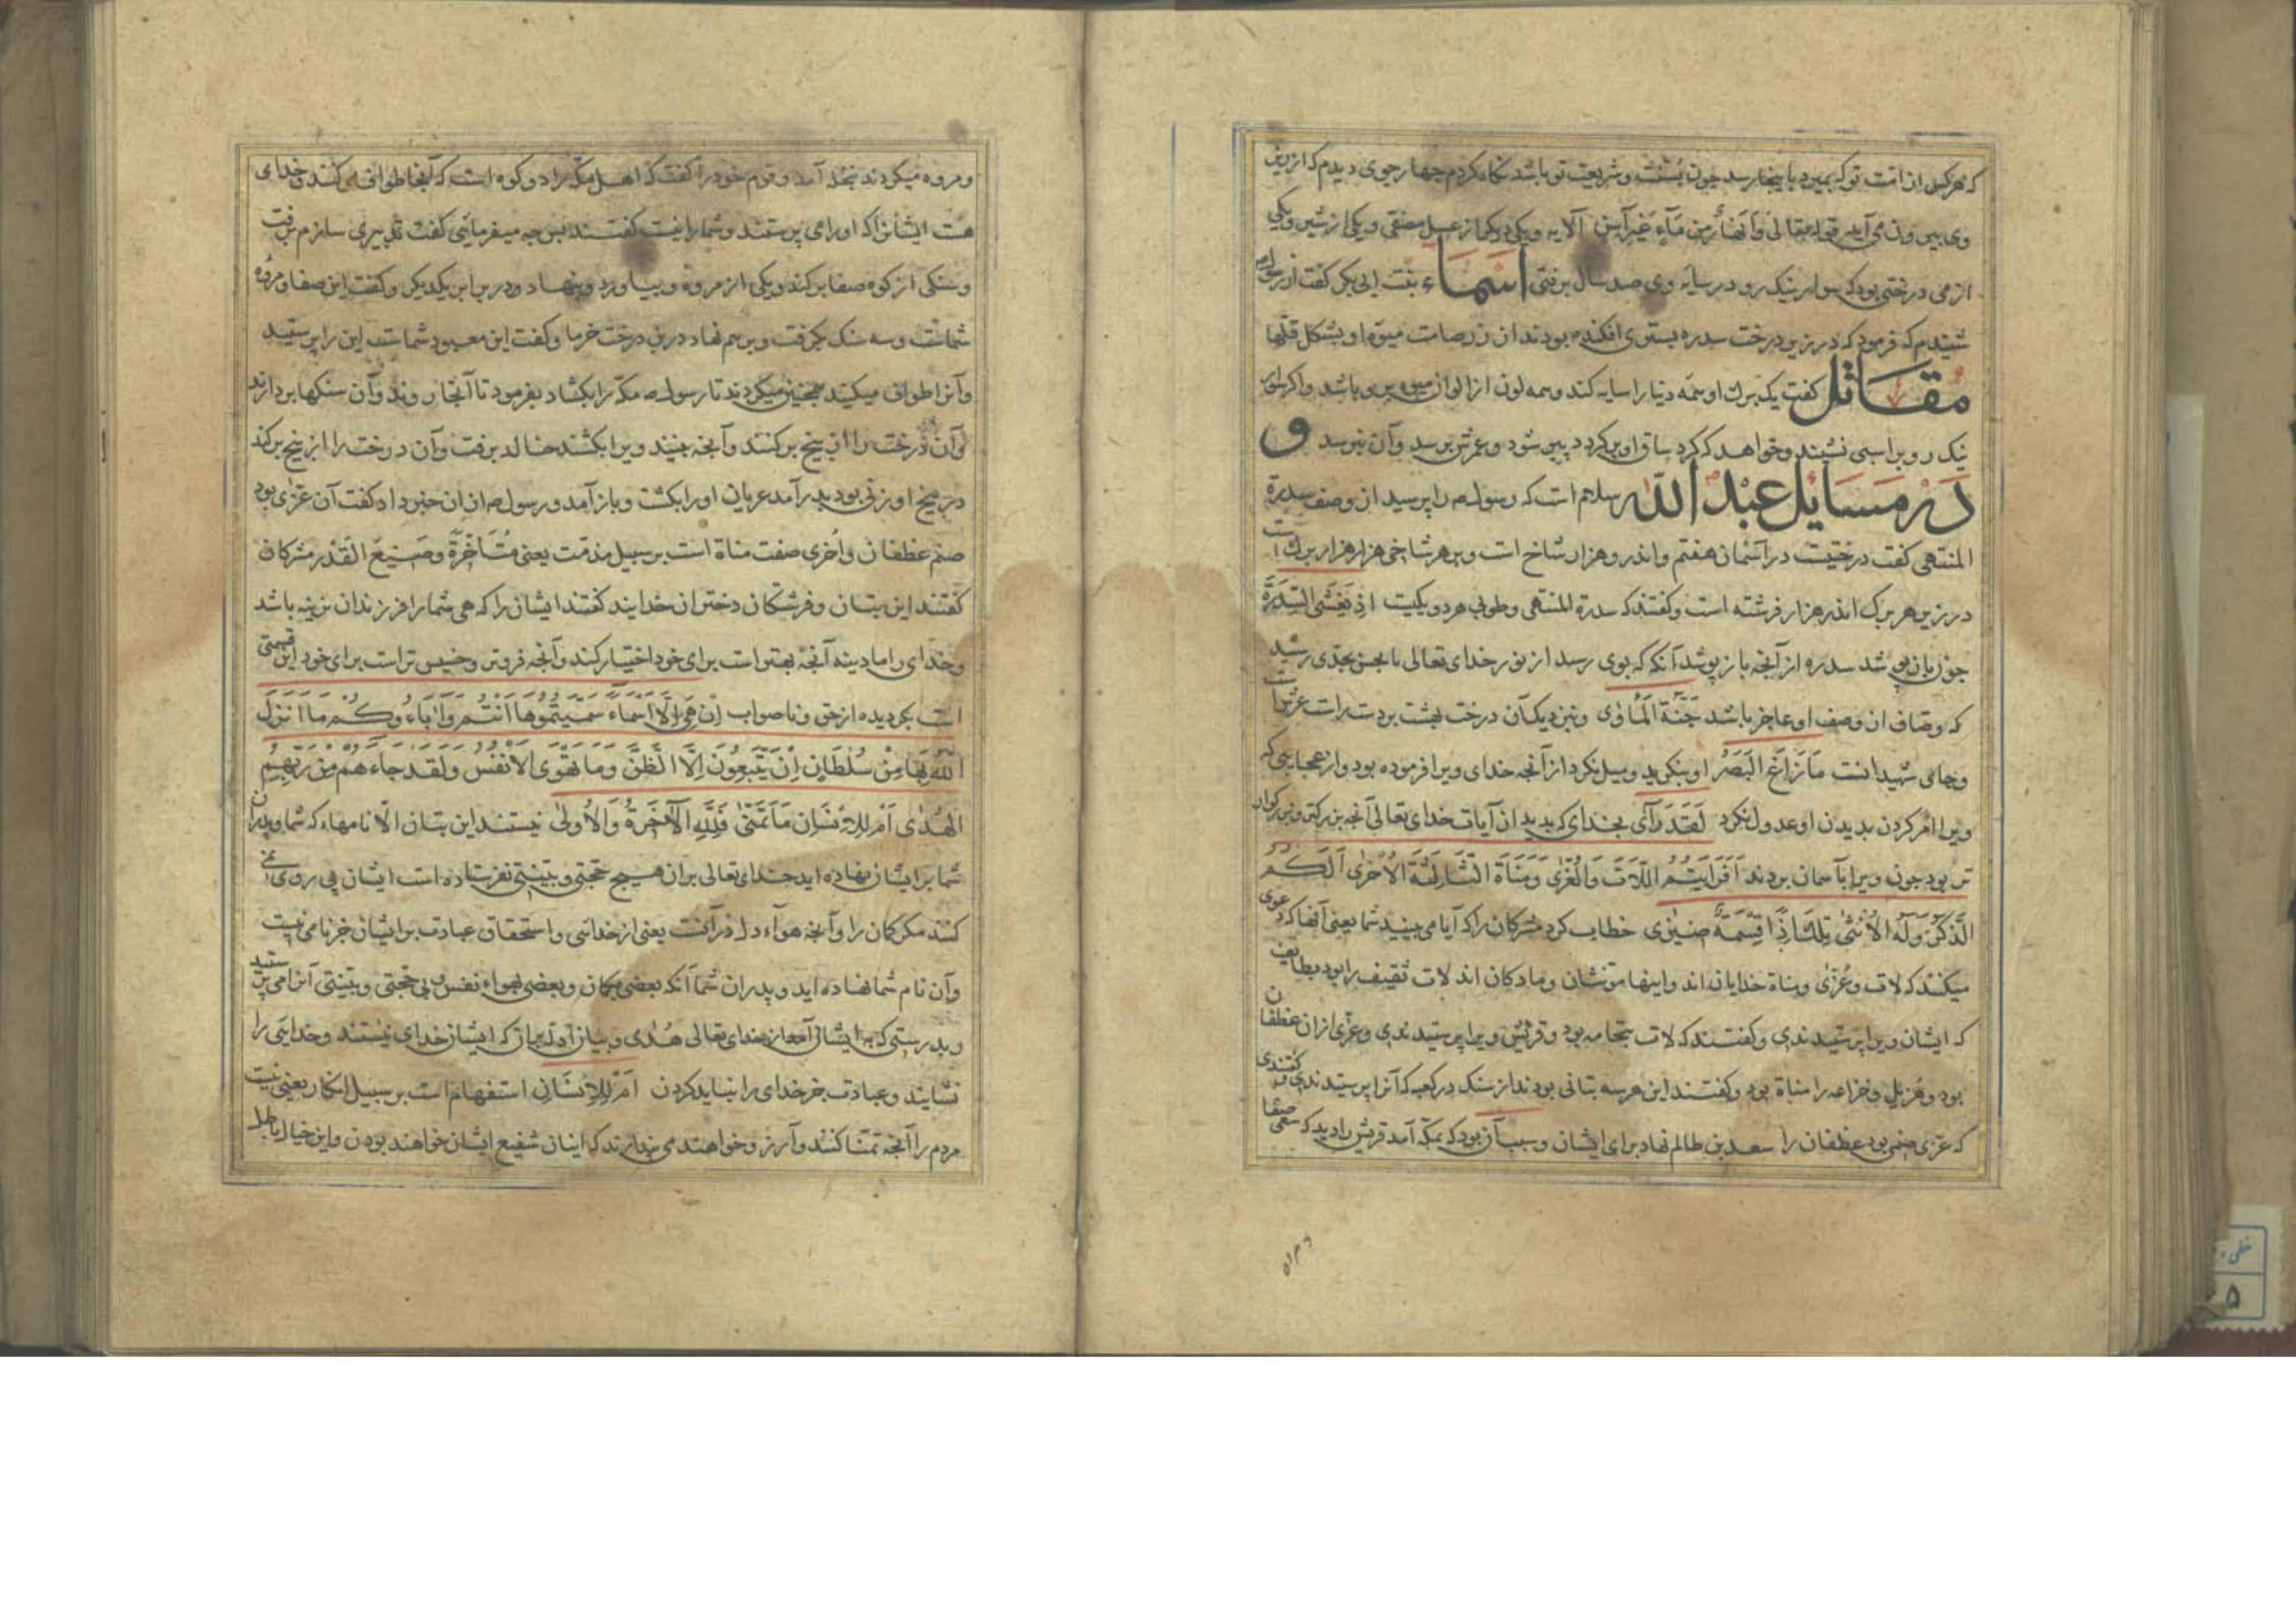 که هرکس از امت تو که بمیرد با ینجا رسد چون بسنت و شریعت تو باشد نکاه کردم چهار جوی دیدم که از زیر
وی بیرون می آید قوله تعالی وَاَنهَارٌ مِن مَآءٍ غَیرِ آسِنٍ الآیه ویکی دیکر از عسل مصفی و یکی از شیر ویکی
از می درختی بود که سوار نیک رو در سایه وی صد سال برفتی اَسْمَاء بنت ابی بکر کفت از رسول صه
شنیدم که فرمود که در زیر درخت سدره بستری افکنده بودند از زر صامت میوه او بشکل قلها
مُقَاتل کفت یک برک او همه دنیا را سایه کند و همه لون از الوان میوه برو باشد واکر سوار
نیک رو بر اسبی نشیند و خواهد که کرد ساق او بر کردد پیر شود و عمرش برسد و آن نرسد و
دَرْ مَسَایل عبْدُ اللّه سلام است که رسول صه را پرسید از وصف سدرة
المنتهی کفت درختیست در آسمان هفتم و اندرو هزار شاخ است و بر هر شاخی هزار هزار برک است
در زیر هر برک اندر هزار فرشته است و کفتند که سدرة المنتهی و طوبی هر دو یکیست اِذ یَغشَی السِّدرَةَ
چون بان پوشد سدره از آنچه باز پوشد آنکه که بوی رسد از نور خدای تعالی تا بحسن بحدی رسید
که وصاف از وصف او عاجز باشد جَنَّةُ المَاوٰی و نزدیک آن درخت بهشت بر دست راست عرش است
و جای شهیدانست مَا زَاغَ البَصَرُ او بنکرید و میل نکرد از آنچه خدای ویرا فرموده بود و از عجایبی که
ویرا امر کردن بدیدن او عدول نکرد لَقَد رَآی بخدای که بدید از آیات خدای تعالی آنچه بزرکتر و بزرکوار
تر بود چون ویرا بآسمان بردند اَفَرَاَیتُمُ اللّاتَ وَالعُزّٰی وَمَنَاةَ الثَّالِثَةَ الاُخرٰی اَلَکُمُ
الذَّکَرُ وَلَهُ الاُنثٰی تِلکَ اِذًا قِسمَةٌ ضِیزٰی خطاب کرد مشرکان را که آیا می بینید شما یعنی آنها که دعوی
میکنند که لات و عُزّٰی و مناة خدایان اند و اینها مونشان و مادکان اند لات ثقیف را بود بطایف
که ایشان ویرا پرستیدندی و کفتند که لات بتجامه بود و قریش ویرا پرستیدندی و عزی ازان غطفان
بود و هزیل و خزاعه را مناة بود و کفتند این هر سه بتانی بودند از سنک در کعبه که آنرا پرستیدندی و کفتندی
که عزی صنمی بود غطفان را سعد بن ظالم نهاد برای ایشان و سبب آن بود که بمکه آمد قریش را دید که سعی صفا
۵۱۳۶
و مروه میکردند بنخله آمد و قوم خود را کفت که اهل مکه را دو کوه است که آنجا طواف می کنند و خدای
هست ایشانرا که او را می پرستند و شما را نیست کفتند پس چه میفرمایی کفت تدبیری سازم برفت
و سنکی از کوه صفا بر کند و یکی از مروه و بیاورد و بنهاد و در برابر یکدیکر و کفت این صفا و مروه
شماست و سه سنک بکرفت و بر هم نهاد در بن درخت خرما و کفت این معبود شماست این را پرستید
و آنرا طواف میکنید همچنین میکردند تا رسول صه مکه را بکشاد بفرمود تا آنجا روند و آن سنکها بردارند
و آن درخت را از بیخ بر کنند و آنچه بینند ویرا بکشند خالد برفت و آن درخت را از بیخ بر کند
در بیخ او زنی بود بدر آمد عریان او را بکشت و باز آمد و رسول صه از ان خبر داد کفت آن عزٰی بود
صنم غطفان و اُخری صفت مناة است بر سبیل مذمّت یعنی مُتَاَخِّرَةً وضِیعَ القَدْر مشرکان
کفتند این بتان و فرشتکان دختران خدایند کفتند ایشان را که هی شما را فرزندان نرینه باشد
و خدای را مادینه آنچه بهتر است برای خود اختیار کند و آنچه فروتر و خسیس تر است برای خود این قسمتی
است بکردیده از حق و ناصواب اِنْ هِیَ اِلَّا اَسْمَاءٌ سَمَّیتُمُوهَا اَنتُم وآبَاءُوکُم مَا اَنزَلَ
اللّهُ بِهَا مِنْ سُلْطَانٍ اِنْ یَتَّبِعُونَ اِلَّا الظَّنَّ وَمَا تَهْوَی الاَنفُسُ وَلَقَد جَاءَهُم مِن رَبِّهِمُ
الهُدٰی اَمْ لِلاِنْسَانِ مَا تَمَنّٰی فَلِلّهِ الآخِرَةُ وَالاُولٰی نیستند این بتان الّا نامهاء که شما و پدران
شما بر ایشان نهاده اید خدای تعالی بران هیچ حجتی و بیّنتی نفرستاده است ایشان پی روی نمی
کنند مکر کمان را و آنچه هوآء دل در آنست یعنی از خدائی و استحقاق عبادت بر ایشان جز نامی نیست
و آن نام شما نهاده اید و پدران شما آنکه بعضی بکمان و بعضی بهواء نفس و بی حجتی و بیّنتی آنرا می پرستید
و بدرستی که به ایشان آمد از خدای تعالی هُدٰی و بیان آورد بران که ایشان خدای نیستند و خدایی را
نشایند و عبادت جز خدای را نباید کردن اَمْ لِلاِنْسَانِ استفهام است بر سبیل انکار یعنی نیست
مردم را آنچه تمنّا کنند و آرزو خواهند می پندارند که اینان شفیع ایشان خواهند بودن و این خیال باطل
خطی
۵